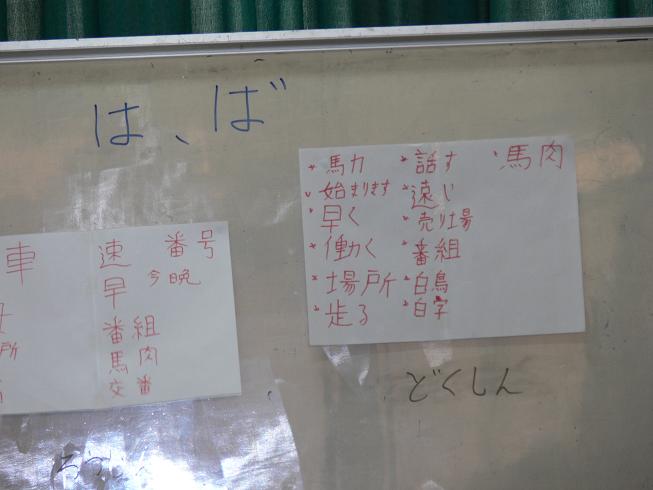 は、ば
馬力
始まります
早く
働く
場所
走る
話す
売り場
番組
白鳥
馬肉
車
所
速
早
番組
馬肉
交番
番号
今晩
どくしん